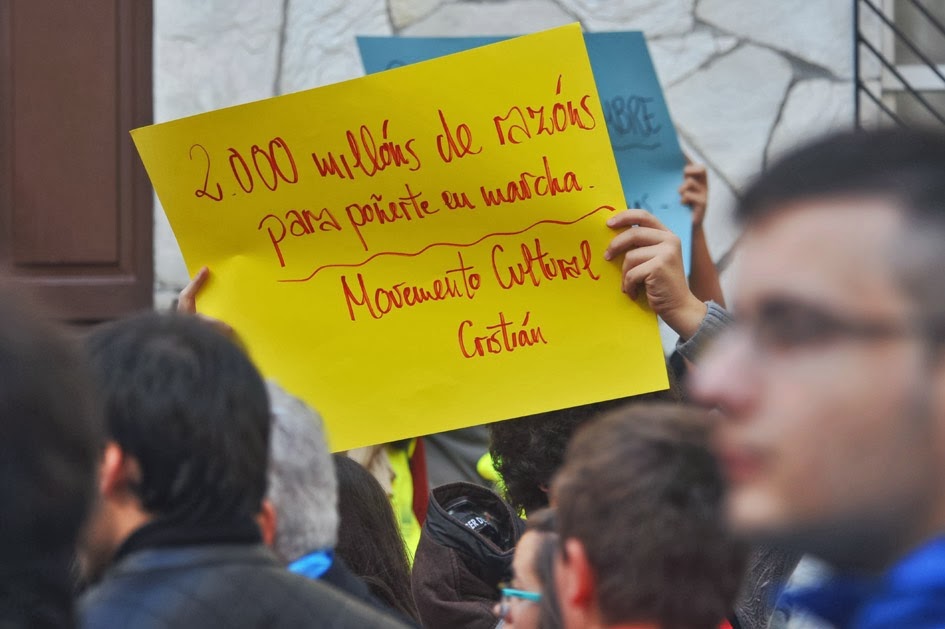 2.000 millóns de razóns
para poñerte en marcha.
Movemento Cultural
Cristián